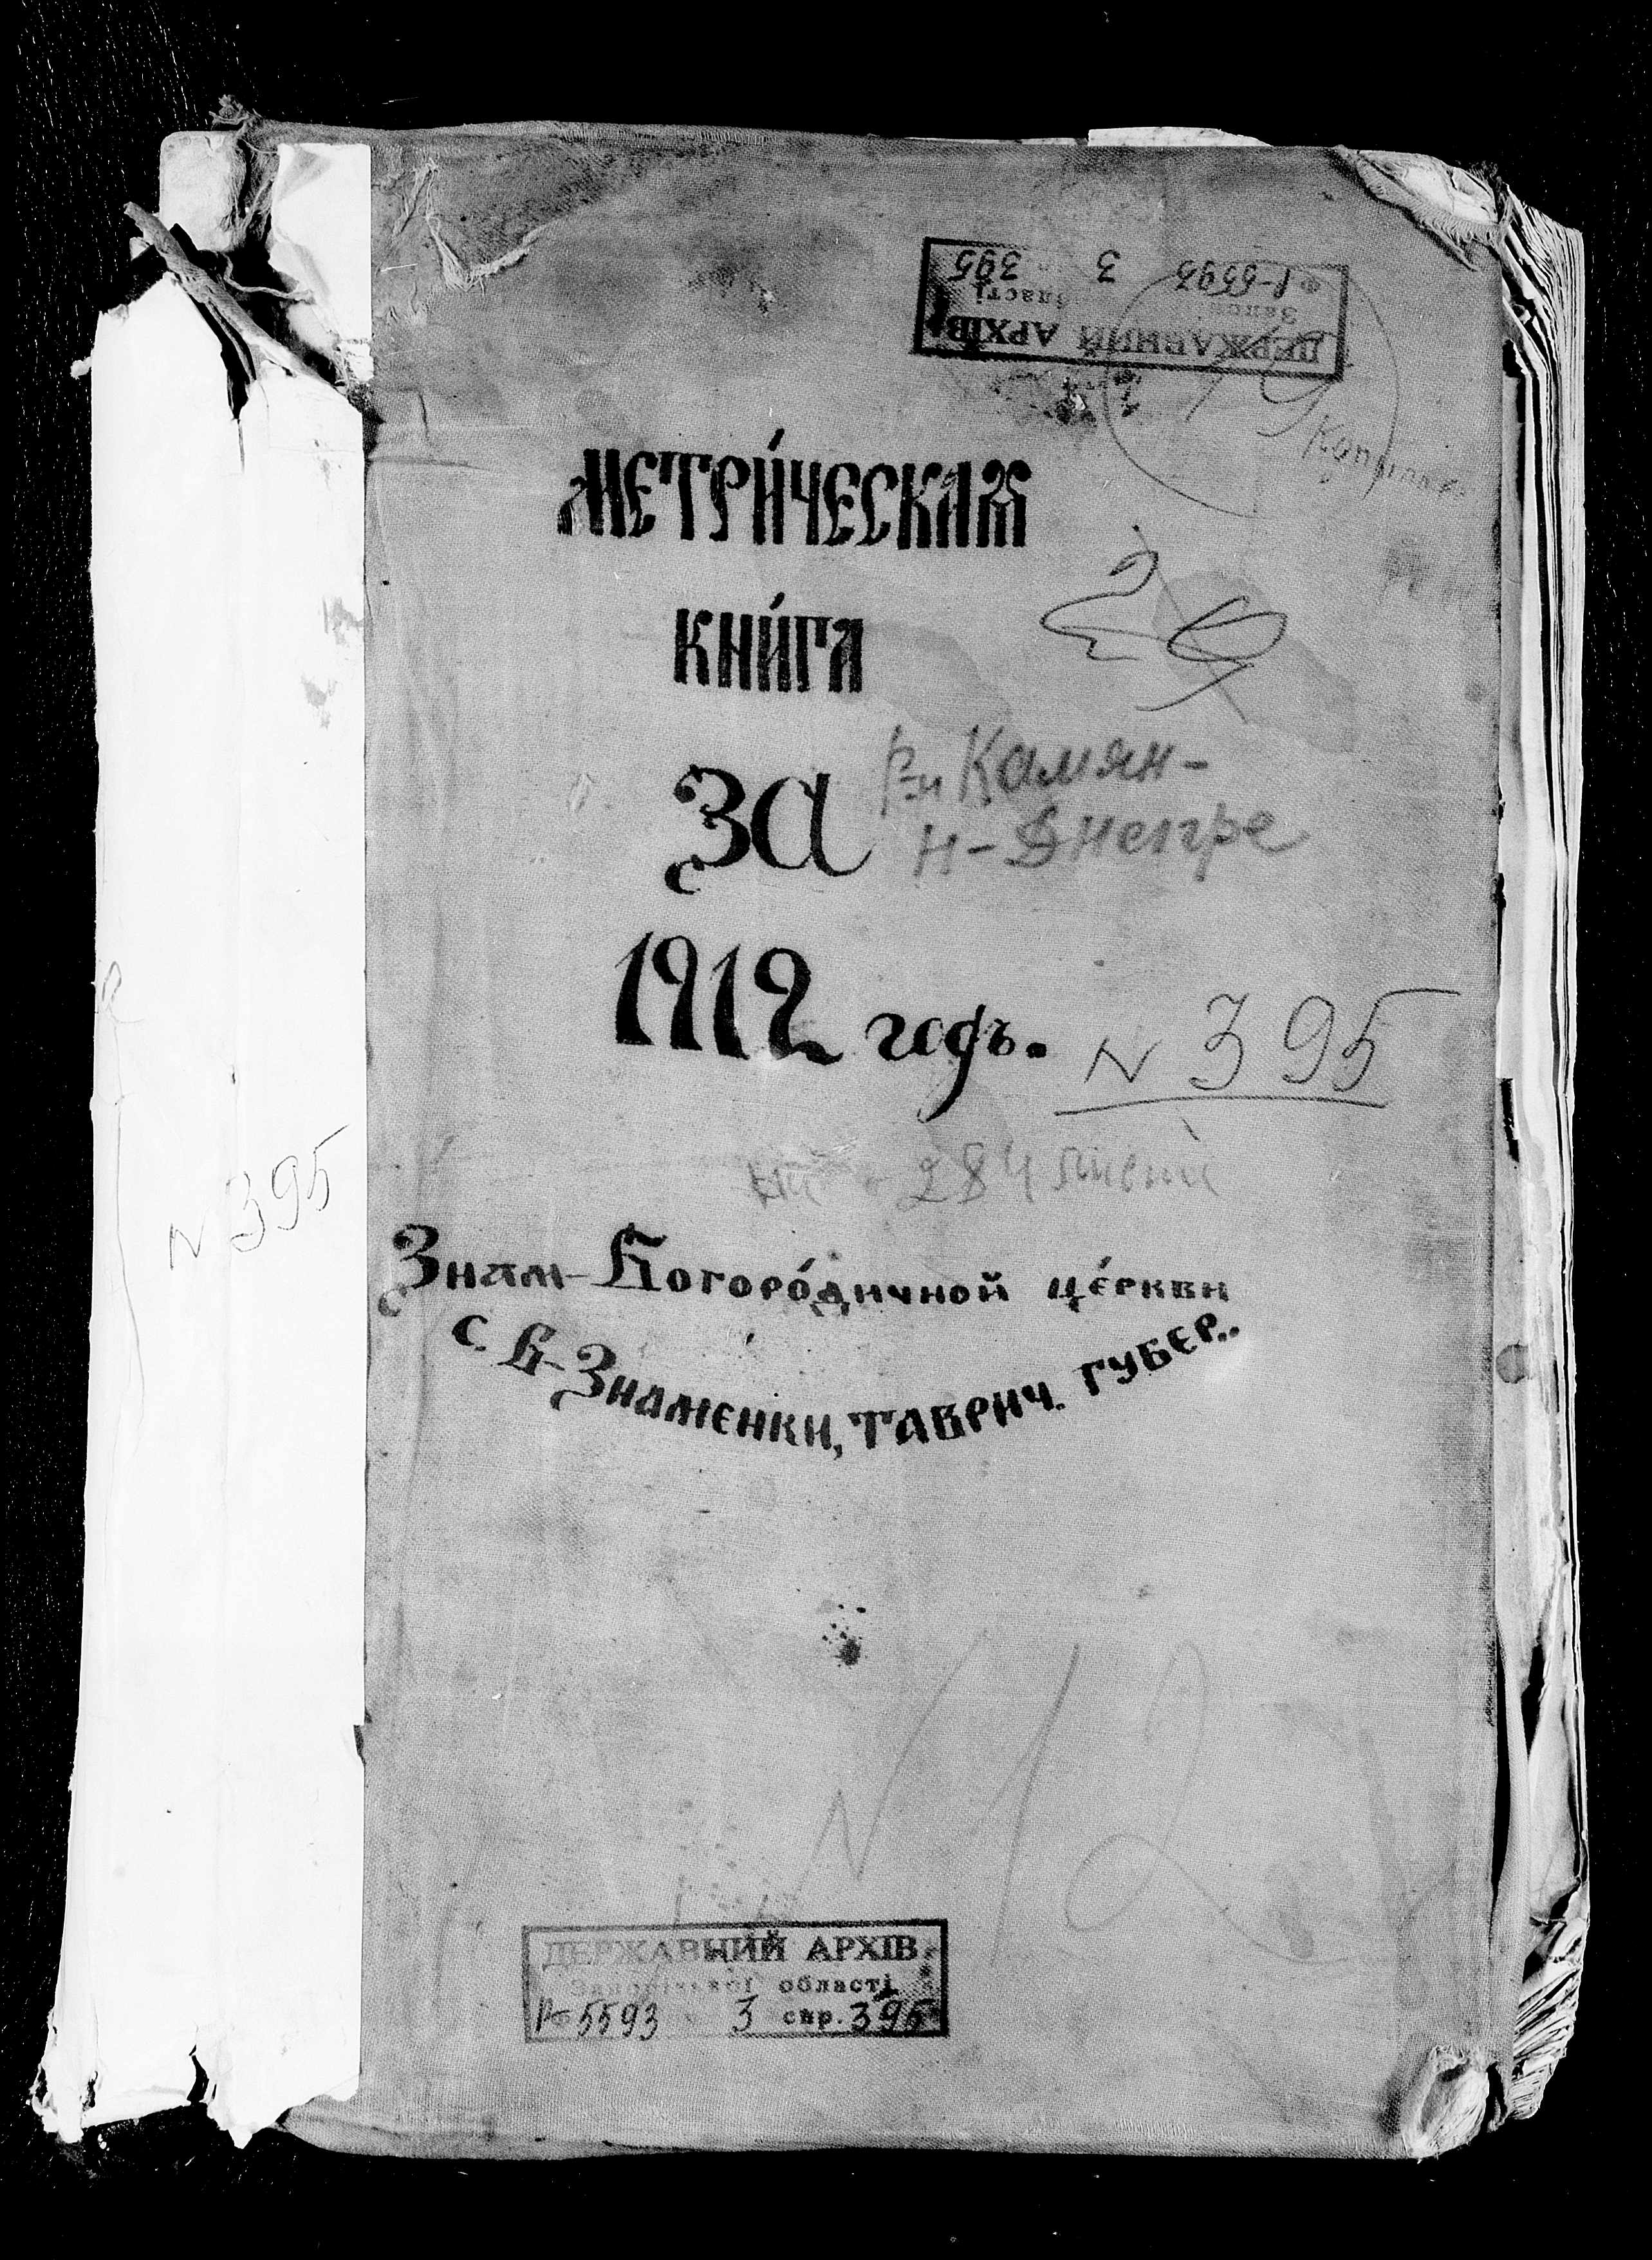 ДЕРЖАВНИЙ АРХІВ
області
Ф Р-5593 3 395
МЕТРИ́ЧЕСКАЯ
КНИ́ГА
ЗА
р-н Камян-
н-Днепре
1912 годъ.
N 395
284
N 395
Знам-Богоро́дичной це́ркви
с. В-Знаменки, Таврич. губер.
N 12
ДЕРЖАВНИЙ АРХІВ
Запорізької області
Р-5593 3 спр. 395